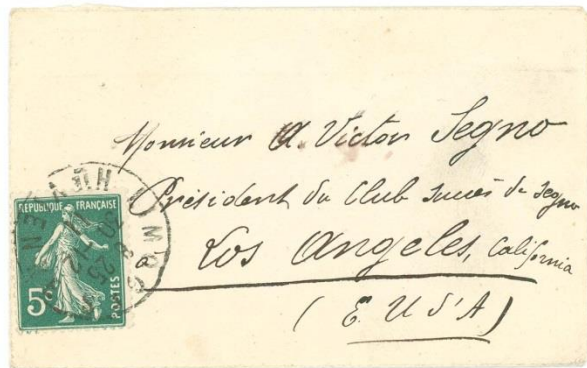 Monsieur A. Victor Segno
Président du Club succès de Segno
Los Angeles, California
(E. U d'A)
RÉPUBLIQUE FRANÇAISE
5c
POSTES